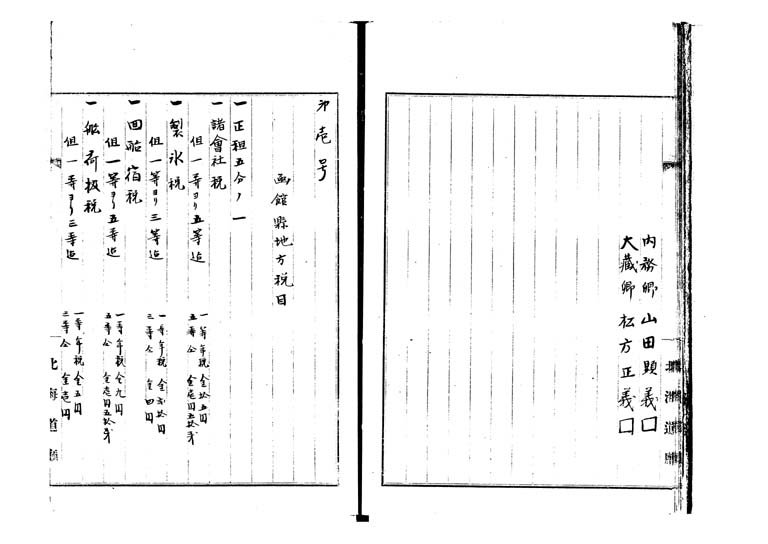 内務卿 山田顕義□
大藏卿 松方正義□
北海道廳
第壱号
函館縣地方税目
一正租五分ノ一
一諸會社税
但一等ヨリ五等迄
一等年税金拾五円
五等仝 金壱円五拾銭
一製氷税
但一等ヨリ三等迄
一等年税金弐拾円
三等仝 金四円
一回酩宿税
但一等ヨリ五等迄
一等年税金九円
五等仝 金壱円五拾銭
一船荷扱税
但一等ヨリ三等迄
一等年税金五円
三等仝 金壱円
北海道廳